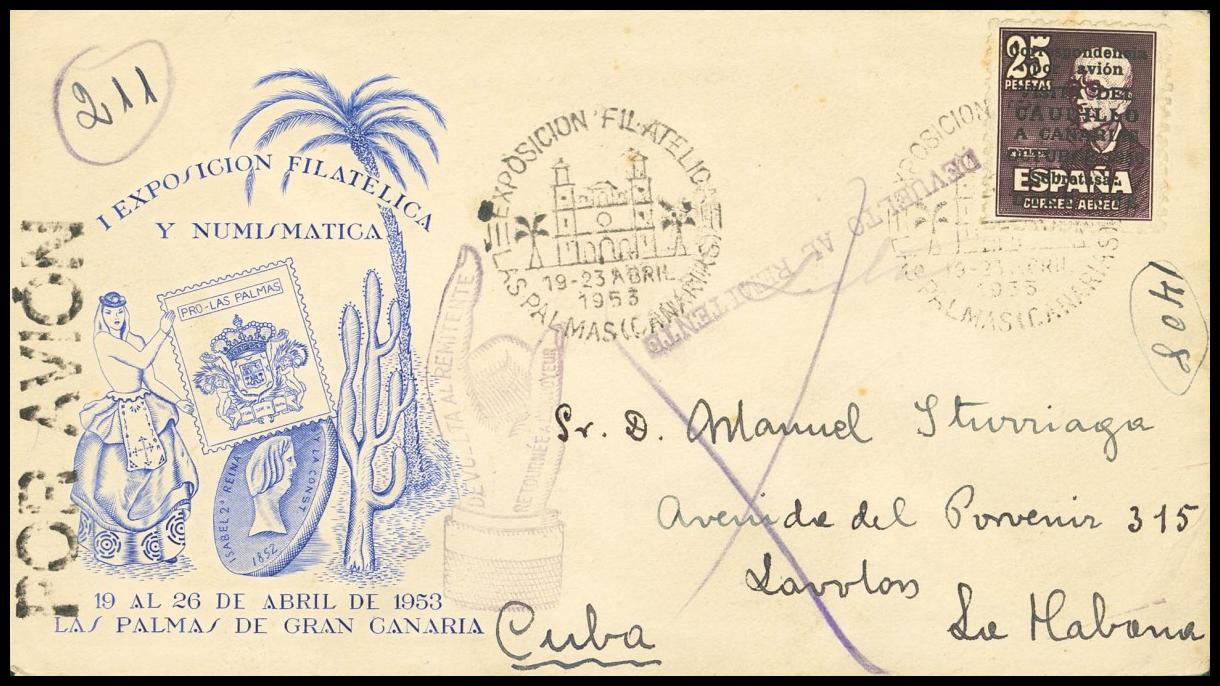 211
I EXPOSICION FILATELICA
Y NUMISMATICA
PRO-LAS PALMAS
ISABEL 2ª REINA
Y LA CONST
1852
19 AL 26 DE ABRIL DE 1953
LAS PALMAS DE GRAN CANARIA
POR AVIÓN
EXPOSICION FILATELICA
19-23 ABRIL
1953
LAS PALMAS (CANARIAS)
DEVUELTA AL REMITENTE
RETOURNÉE A L'ENVOYEUR
DEVUELTO AL REMITENTE
25
PESETAS
Correspondencia
por avión
DEL
CAUDILLO
A CANARIAS
Sobretasa:
ESPAÑA
CORREO AEREO
EXPOSICION
19-23 ABRIL
1953
LAS PALMAS (CANARIAS)
1408
Sr. D. Manuel Iturriaga
Avenida del Porvenir 315
La Habana
Cuba